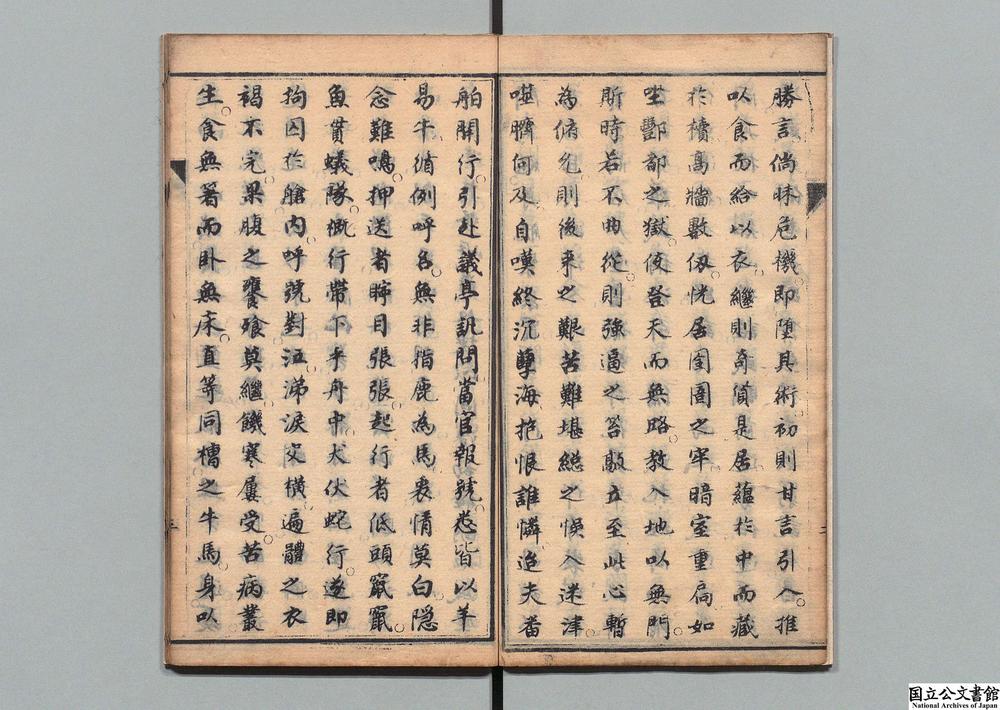 勝言倘昧危機即堕其術初則甘言引入推
以食而給以衣繼則奇貨是居蘊於中而藏
於櫝高牆數仭恍居囹圄之牢暗室重扃如
坐酆都之獄使登天而無路教入地以無門
斯時若不曲從則強逼之笞敲立至此心暫
為俯允則後来之艱苦難堪總之悞入迷津
噬臍何及自嘆終沉孽海抱恨誰憐迨夫番
舶開行引赴議亭訊問當官報號悉皆以羊
易牛循例呼名無非指鹿為馬衷情莫白隠
念難鳴押送者睜目張張起行者低頭竄竄
魚貫蟻隊概行帶下乎舟中犬伏蛇行遂即
拘囚於艙內呼號對泣涕淚交橫遍體之衣
褐不完果腹之饔飧莫繼饑寒屢受苦病叢
生食無箸而卧無床直等同槽之牛馬身以
二
三
国立公文書館
National Archives of Japan